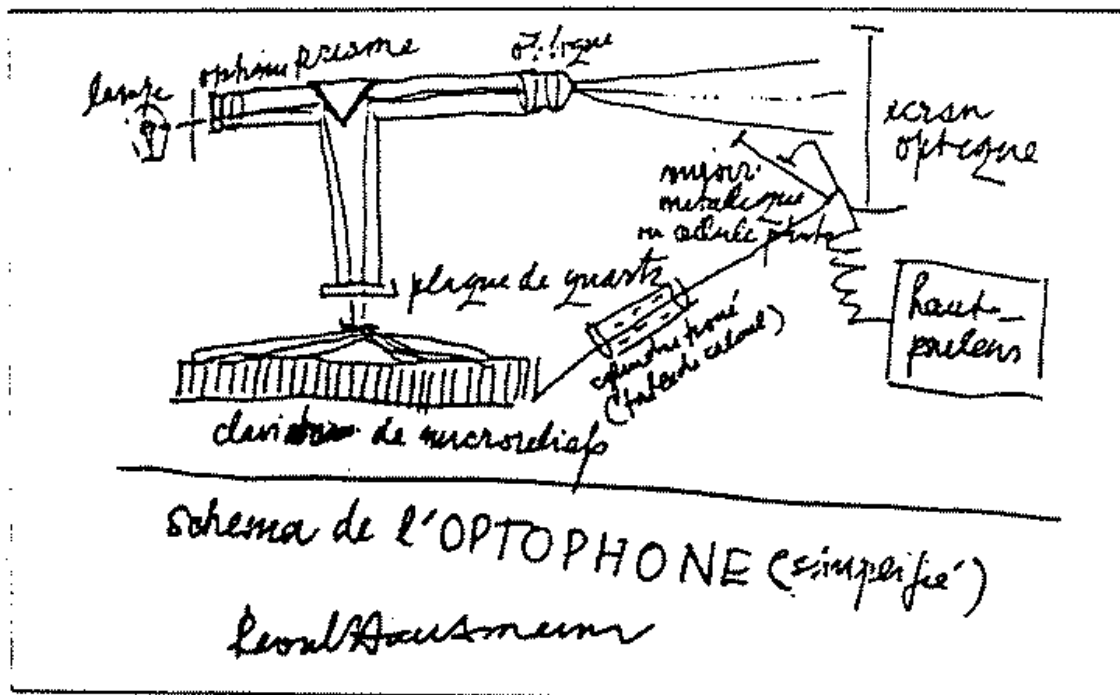 lampe
optique prisme
optique
écran
optique
miroir
métallique
ou cellule photo
plaque de quartz
cylindre troué
haut-
parleurs
de microreliefs
schema de l'OPTOPHONE (simplifié)
Raoul Hausmann